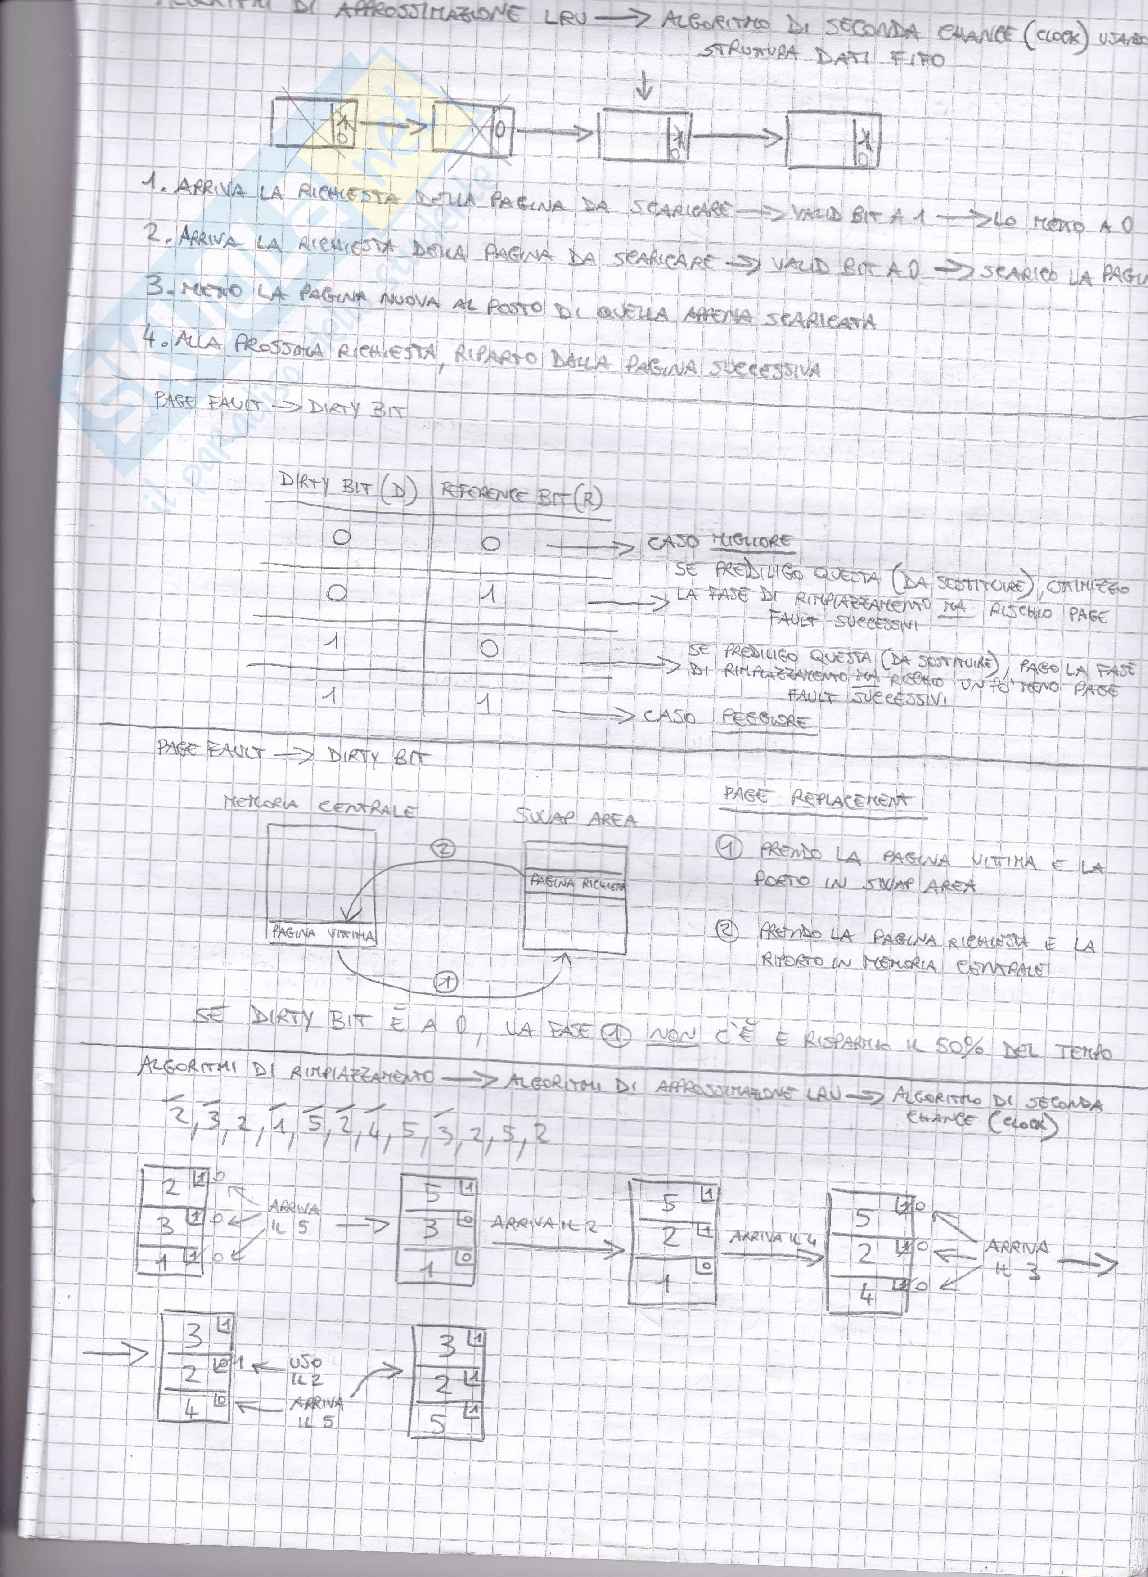 ALGORITMI DI APPROSSIMAZIONE LRU → ALGORITMO DI SECONDA CHANCE (CLOCK)
STRUTURA DATI FIFO
1 0 → 0 → 1 0 → 1 0
1. ARRIVA LA RICHIESTA DELLA PAGINA DA SCARICARE → VALID BIT A 1 → LO METTO A 0
2. ARRIVA LA RICHIESTA DELLA PAGINA DA SCARICARE → VALID BIT A 0 → SCARICO LA PAGIN
3. METTO LA PAGINA NUOVA AL POSTO DI QUELLA APPENA SCARICATA
4. ALLA PROSSIMA RICHIESTA, RIPARTO DALLA PAGINA SUCCESSIVA
SKUOLA.net
il paradiso dello studente
PAGE FAULT → DIRTY BIT
DIRTY BIT (D) | REFERENCE BIT (R)
0 0 → CASO MIGLIORE
0 1 → SE PREDILIGO QUESTA (DA SOSTITUIRE), OTTIMIZZO
LA FASE DI RIMPIAZZAMENTO MA RISCHIO PAGE
FAULT SUCCESSIVI
1 0 → SE PREDILIGO QUESTA (DA SOSTITUIRE), PAGO LA FASE
DI RIMPIAZZAMENTO MA RISCHIO UN PO' MENO PAGE
FAULT SUCCESSIVI
1 1 → CASO PEGGIORE
PAGE FAULT → DIRTY BIT
MEMORIA CENTRALE
SWAP AREA
PAGE REPLACEMENT
2
PAGINA RICHIESTA
PAGINA VITTIMA
1
1 PRENDO LA PAGINA VITTIMA E LA
PORTO IN SWAP AREA
2 PRENDO LA PAGINA RICHIESTA E LA
RIPORTO IN MEMORIA CENTRALE
SE DIRTY BIT È A 0, LA FASE 1 NON C'È E RISPARMIO IL 50% DEL TEMPO
ALGORITMI DI RIMPIAZZAMENTO → ALGORITMI DI APPROSSIMAZIONE LRU → ALGORITMO DI SECONDA
CHANCE (CLOCK)
2, 3, 2, 1, 5, 2, 4, 5, 3, 2, 5, 2
2 1 0
3 1 0
1 1 0
ARRIVA
IL 5
5 1
3 0
1 0
ARRIVA IL 2
5 1
2 1
1 0
ARRIVA IL 4
5 1 0
2 1 0
4 1 0
ARRIVA
IL 3
3 1
2 0 1
4 0
USO
IL 2
ARRIVA
IL 5
3 1
2 1
5 1